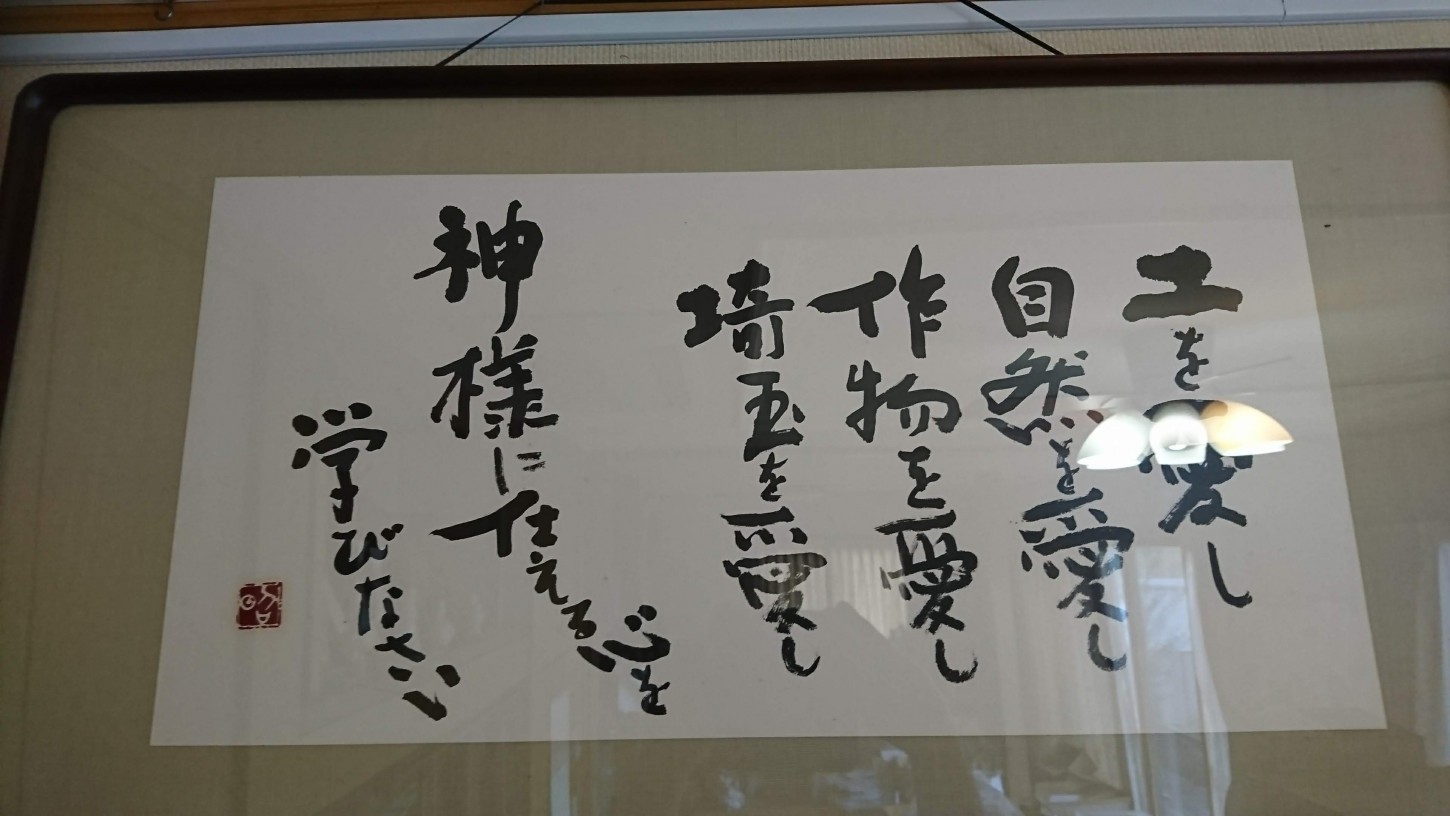 土を愛し
自然を愛し
作物を愛し
埼玉を愛し
神様に仕える心を
学びなさい